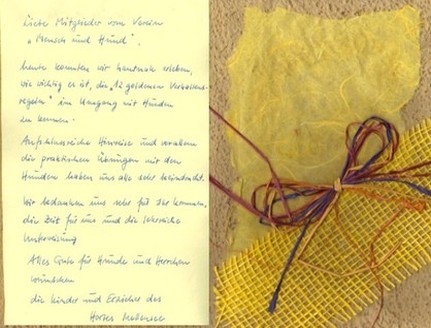 Liebe Mitglieder vom Verein
„Mensch und Hund",
heute konnten wir hautnah erleben,
wie wichtig es ist, die „12 goldenen Verhaltens-
regeln" im Umgang mit Hunden
zu kennen.
Aufschlussreiche Hinweise und vor allem
die praktischen Übungen mit den
Hunden haben uns alle sehr beeindruckt.
Wir bedanken uns sehr für Ihr Kommen,
die Zeit für uns und die lehrreiche
Unterweisung
Alles Gute für Hunde und Herrchen
wünschen
die Kinder und Erzieher des
Hortes